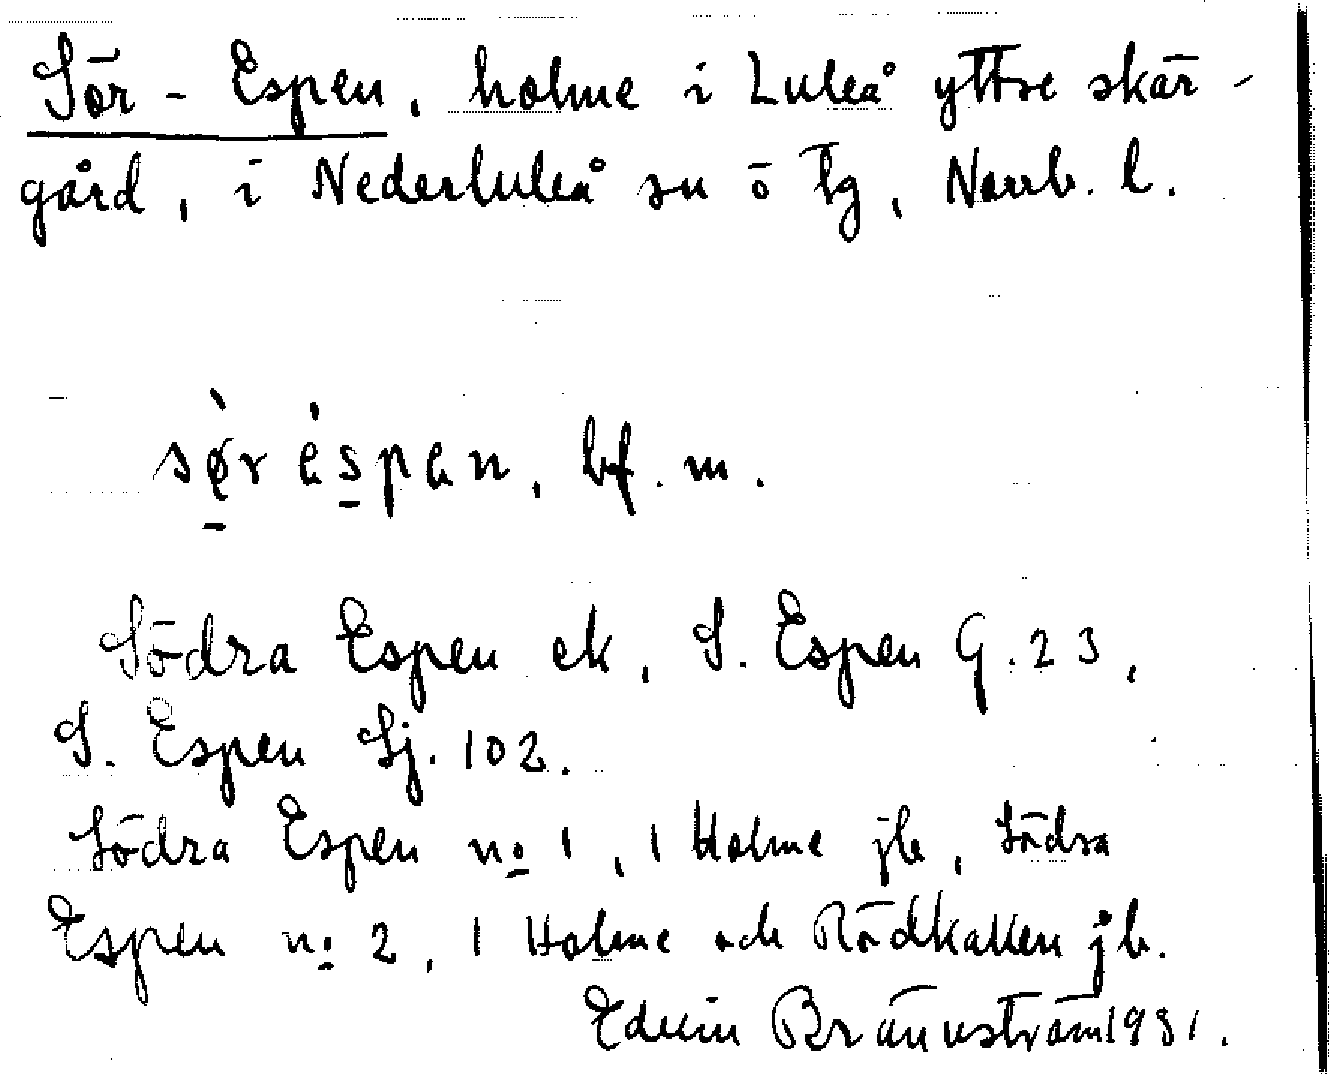 Sör-Espen, holme i Luleå yttre skär-
gård, i Nederluleå sn ö tg, Norrb. l.
sø̀r éspen, bf. m.
Södra Espen ek, S. Espen G. 23,
S. Espen Sj. 102.
Södra Espen no 1, 1 Holme jb, Södra
Espen no 2, 1 Holme och Rödkallen jb.
Edvin Brännström 1981.